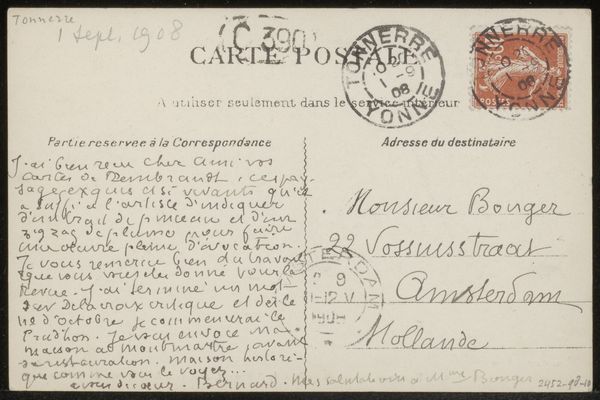 Tonnerre
1 Sept. 1908
C 390
CARTE POSTALE
TONNERRE
YONNE
1 - 9
08
TONNERRE
YONNE
1 - 9
08
POSTES
A utiliser seulement dans le service intérieur
Partie reservée à la Correspondance
Adresse du destinataire
J'ai bien recu cher Ami vos
cartes de Rembrandt : ces pay-
sages exquis et si vivants qu'il
a suffi à l'artiste d'indiquer
d'un trait de pinceau et d'un
zig zag de plume pour faire
une œuvre pleine d'évocation.
Je vous remercie bien du travail
que vous vous donné pour la
Revue. J'ai terminé un mot
sur Delacroix critique et dès le
no d'octobre je commencerai le
Prudhon. Je vous envoie ma
maison de montmartre, avant
sa restauration. maison histori-
que comme vous le voyez...
à vous de cœur. Bernard. mes salutations à Mme Bonger
Monsieur Bonger
22 Vossiusstraat
Amsterdam
Hollande
AMSTERDAM
9
-12 V
1908
2452-90-10